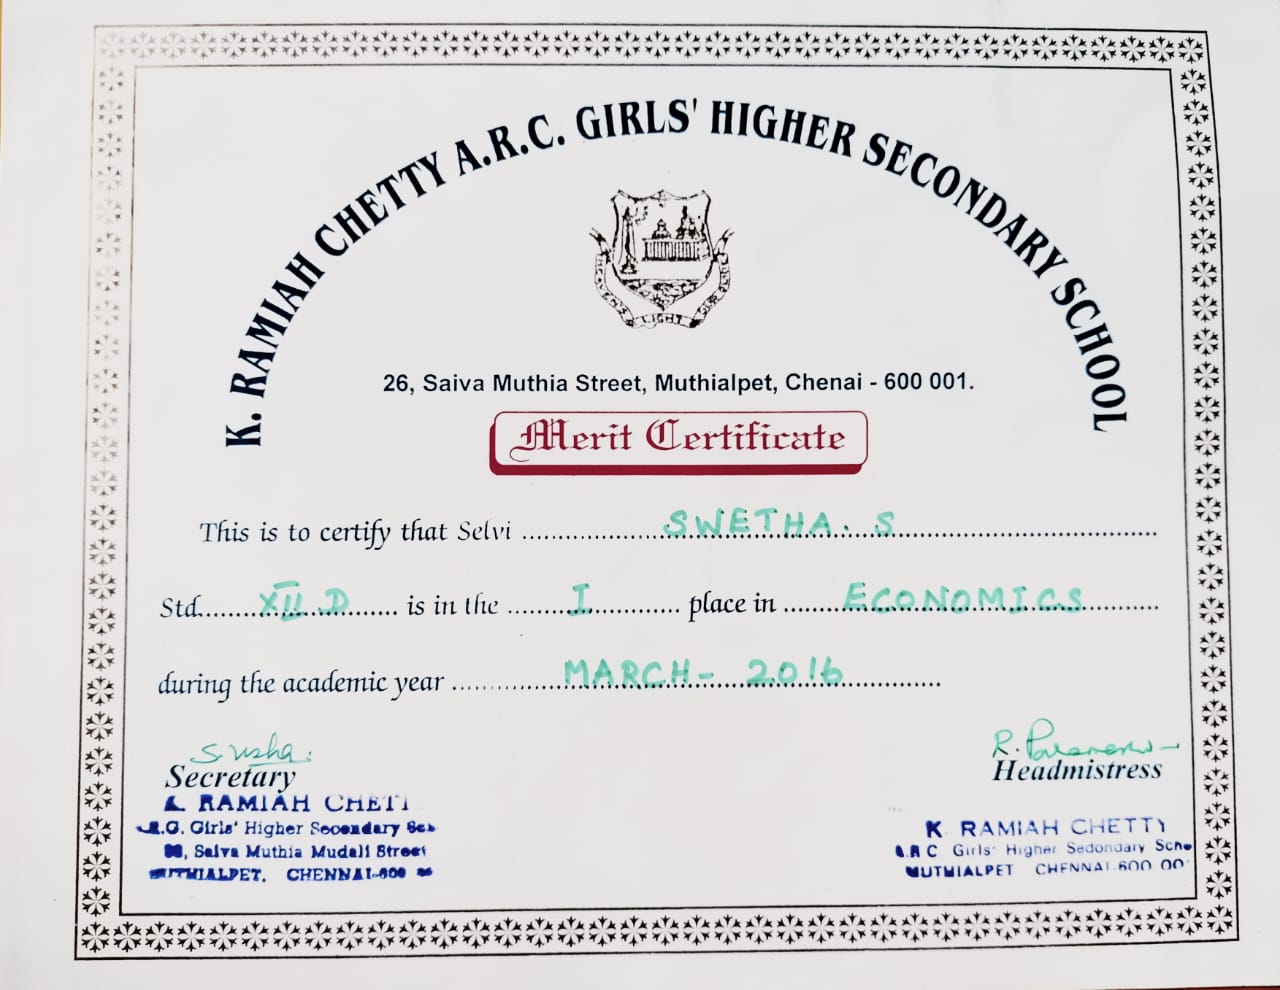 K. RAMIAH CHETTY A.R.C. GIRLS' HIGHER SECONDARY SCHOOL
LIGHT
26, Saiva Muthia Street, Muthialpet, Chenai - 600 001.
Merit Certificate
This is to certify that Selvi SWETHA. S
Std. XII D is in the I place in ECONOMICS
during the academic year MARCH - 2016
S. Usha.
Secretary
RAMIAH CHETT
Girls' Higher Secondary
Saiva Muthia Mudali Street
MUTHIALPET, CHENNAI-600
R.
Headmistress
K RAMIAH CHETTY
A.R C Girls' Higher Sedondary Scho
MUTHIALPET CHENNAI-600 00